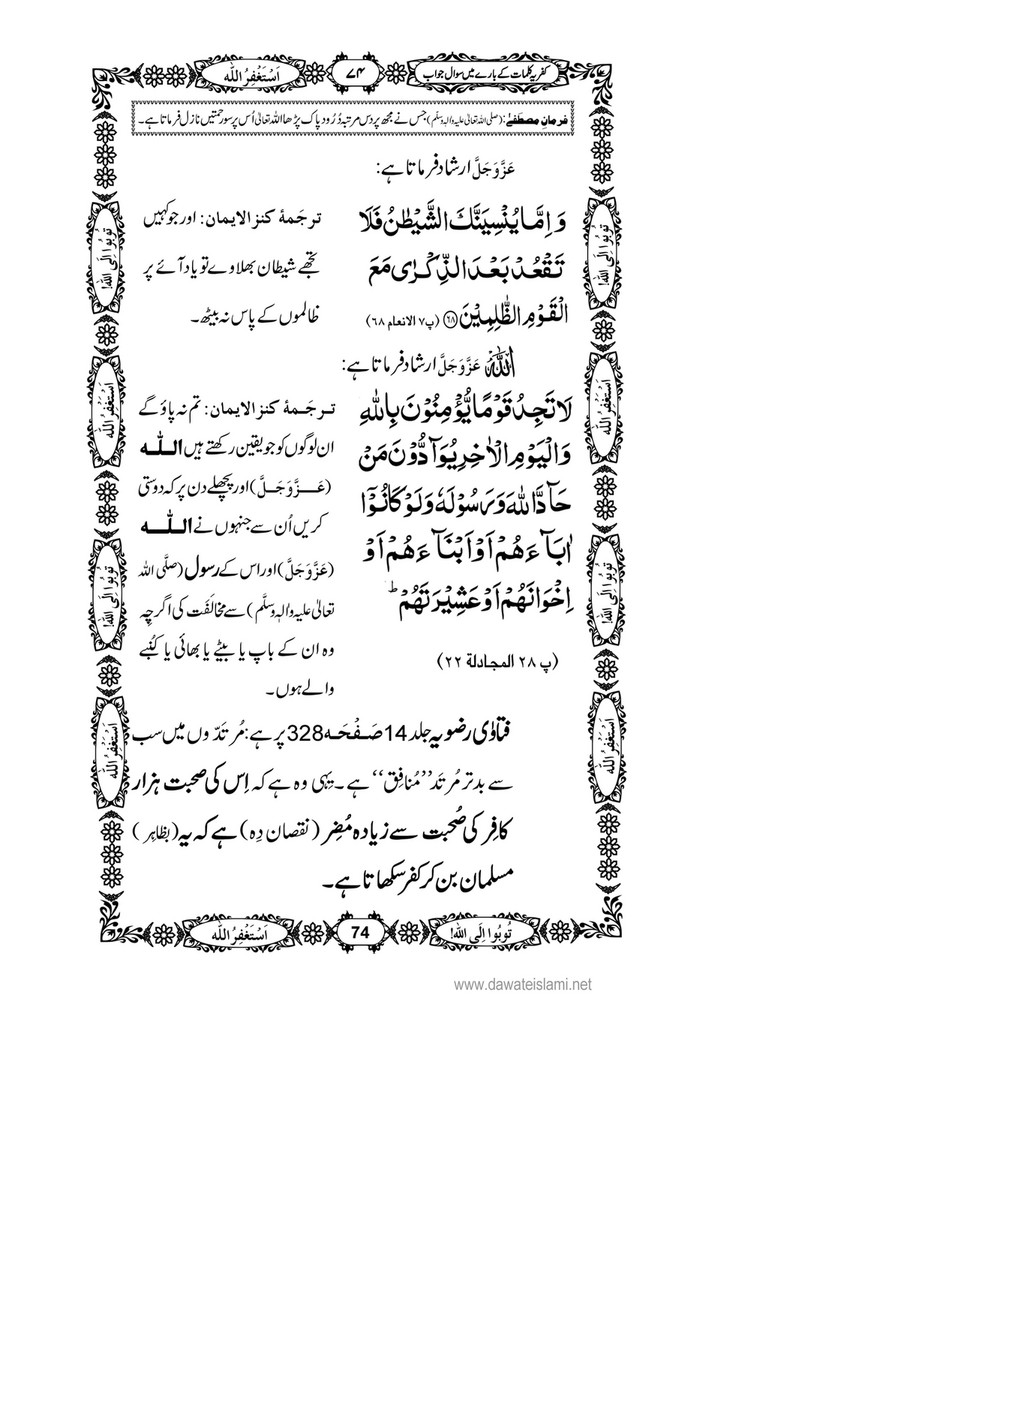 کفریہ کلمات کے بارے میں سوال جواب ٧٤ اَسْتَغْفِرُ اللّٰه
فرمانِ مصطفےٰ: (صلی اللہ تعالیٰ علیہ والہ وسلّم) جس نے مجھ پر دس مرتبہ دُرُود پاک پڑھا اللہ تعالیٰ اُس پر سو رحمتیں نازل فرماتا ہے۔
عَزَّوَجَلَّ ارشاد فرماتا ہے:
وَ اِمَّا یُنْسِیَنَّكَ الشَّیْطٰنُ فَلَا
تَقْعُدْ بَعْدَ الذِّكْرٰى مَعَ
الْقَوْمِ الظّٰلِمِیْنَ ﴿۶۸﴾ (پ۷ الانعام ۶۸)
ترجَمۂ کنز الایمان: اور جو کہیں
تجھے شیطان بھلاوے تو یاد آئے پر
ظالموں کے پاس نہ بیٹھ۔
اللہ عَزَّوَجَلَّ ارشاد فرماتا ہے:
لَا تَجِدُ قَوْمًا یُّؤْمِنُوْنَ بِاللّٰهِ
وَ الْیَوْمِ الْاٰخِرِ یُوَآدُّوْنَ مَنْ
حَآدَّ اللّٰهَ وَ رَسُوْلَهٗ وَ لَوْ كَانُوْۤا
اٰبَآءَهُمْ اَوْ اَبْنَآءَهُمْ اَوْ
اِخْوَانَهُمْ اَوْ عَشِیْرَتَهُمْ ؕ
(پ ۲۸ المجادلة ۲۲)
ترجَمۂ کنز الایمان: تم نہ پاؤ گے
ان لوگوں کو جو یقین رکھتے ہیں اللّٰہ
(عَزَّوَجَلَّ) اور پچھلے دن پر کہ دوستی
کریں اُن سے جنہوں نے اللّٰہ
(عَزَّوَجَلَّ) اور اس کے رسول (صلَّی اللہ
تعالیٰ علیہ والہٖ وسلَّم) سے مخالَفَت کی اگرچِہ
وہ ان کے باپ یا بیٹے یا بھائی یا کُنبے
والے ہوں۔
فتاوٰی رضویہ جلد 14 صَفْحَہ 328 پر ہے: مُرتَدّوں میں سب
سے بدتر مُرتَد ’’مُنافِق‘‘ ہے۔ یِہی وہ ہے کہ اِس کی صحبت ہزار
کافِر کی صُحبت سے زیادہ مُضِر (نقصان دِہ) ہے کہ یہ (بظاہِر)
مسلمان بن کر کفر سکھاتا ہے۔
تُوبُوا اِلَی اللّٰه!
اَسْتَغْفِرُ اللّٰه
تُوبُوا اِلَی اللّٰه!
اَسْتَغْفِرُ اللّٰه
تُوبُوا اِلَی اللّٰه!
اَسْتَغْفِرُ اللّٰه
تُوبُوا اِلَی اللّٰه!
اَسْتَغْفِرُ اللّٰه
تُوبُوا اِلَی اللّٰه! 74 اَسْتَغْفِرُ اللّٰه
www.dawateislami.net